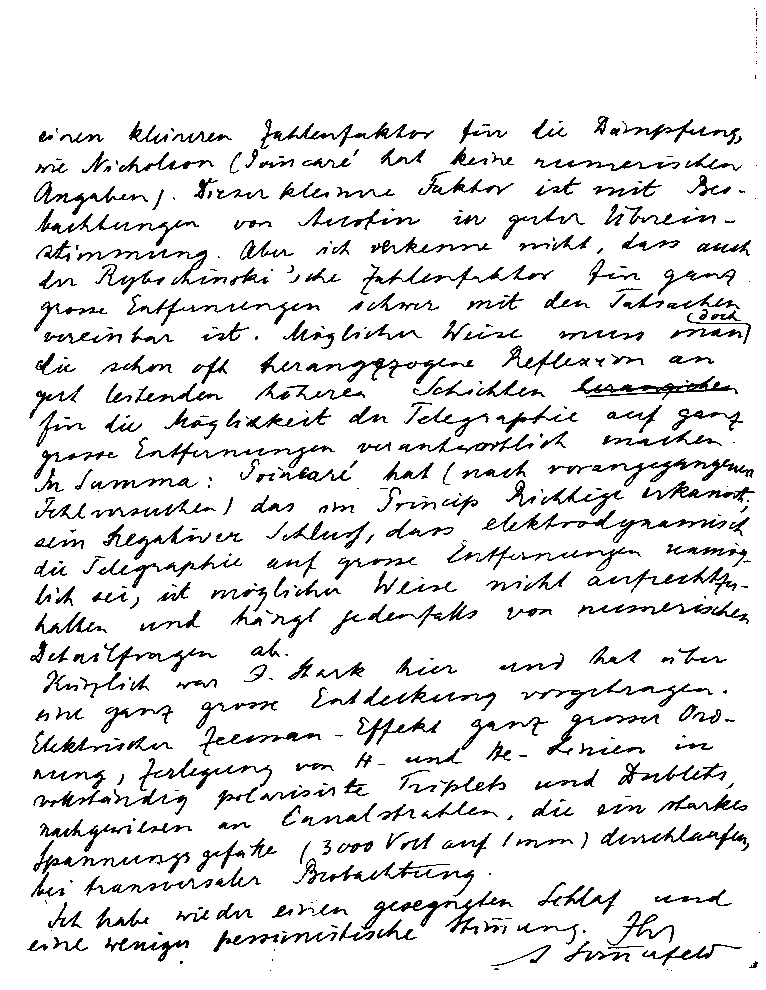 einen kleineren Zahlenfaktor für die Dämpfung,
wie Nicholson (Poincaré hat keine numerischen
Angaben). Dieser kleinere Faktor ist mit Beo-
bachtungen von Austin in guter Überein-
stimmung. Aber ich verkenne nicht, dass auch
der Rybschinski'sche Zahlenfaktor für ganz
grosse Entfernungen schwer mit den Tatsachen
vereinbar ist. Möglicher Weise muss man doch
die schon oft herangezogene Reflexion an
gut leitenden höheren Schichten heranziehen
für die Möglichkeit der Telegraphie auf ganz
grosse Entfernungen verantwortlich machen.
In Summa: Poincaré hat (nach vorangegangenen
Fehlversuchen) das im Princip Richtige erkannt;
sein negativer Schluss, dass elektrodynamisch
die Telegraphie auf grosse Entfernungen unmög-
lich sei, ist möglicher Weise nicht aufrechtzu-
halten und hängt jedenfalls von numerischen
Detailfragen ab.
Kürzlich war J. Stark hier und hat über
eine ganz grosse Entdeckung vorgetragen.
Elektrischer Zeeman-Effekt ganz grosser Ord-
nung, Zerlegung von H- und He-Linien in
vollständig polarisirte Triplets und Dublets,
nachgewiesen an Canalstrahlen, die ein starkes
Spannungsgefälle (3000 Volt auf 1 mm) durchlaufen,
bei transversaler Beobachtung.
Ich habe wieder einen gesegneten Schlaf und
eine weniger pessimistische Stimmung. Ihr
A Sommerfeld